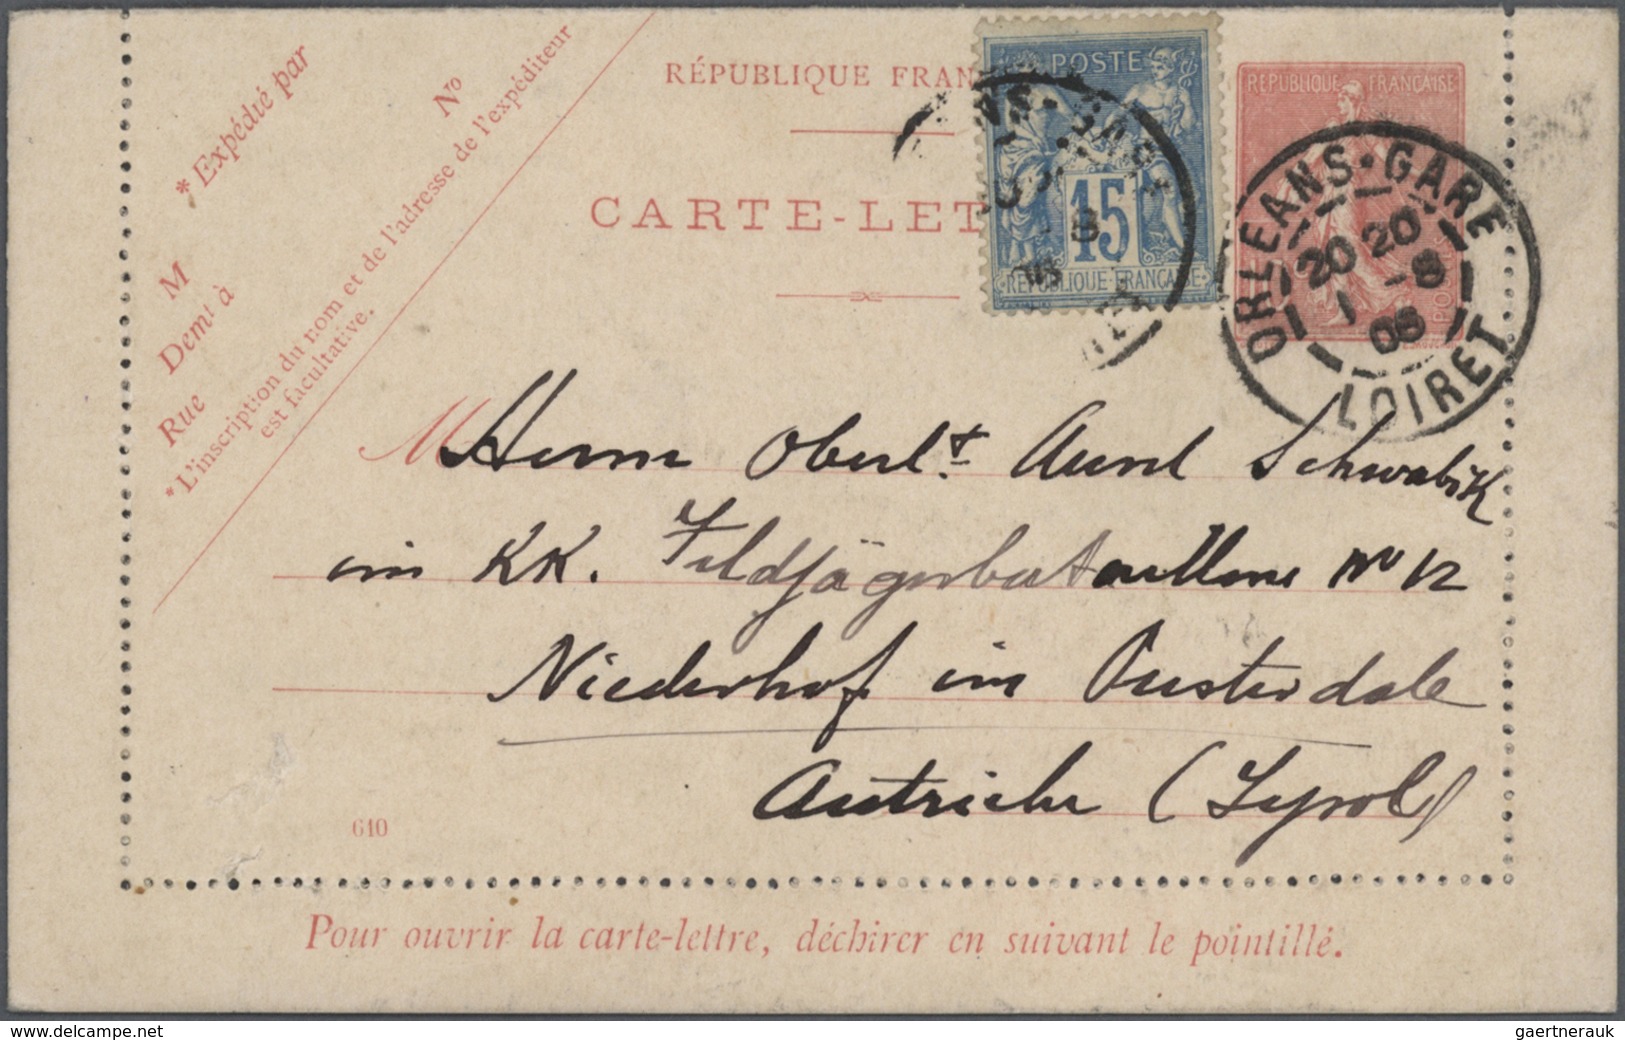 RÉPUBLIQUE FRAN
CARTE-LET
* Expédié par
No
M
Demt à
Rue
* L'inscription du nom et de l'adresse de l'expéditeur
est facultative.
POSTE
15
RÉPUBLIQUE FRANÇAISE
REPUBLIQUE FRANÇAISE
ORLEANS-GARE
20 20
1 -8
08
LOIRET
M Herrn Oberlt. Aurel Schwabik
im KK. Feldjägerbataillone No 12
Niederhof im Pusterdale
Autriche (Tyrol)
610
Pour ouvrir la carte-lettre, déchirer en suivant le pointillé.
www.delcampe.net
gaertnerauk